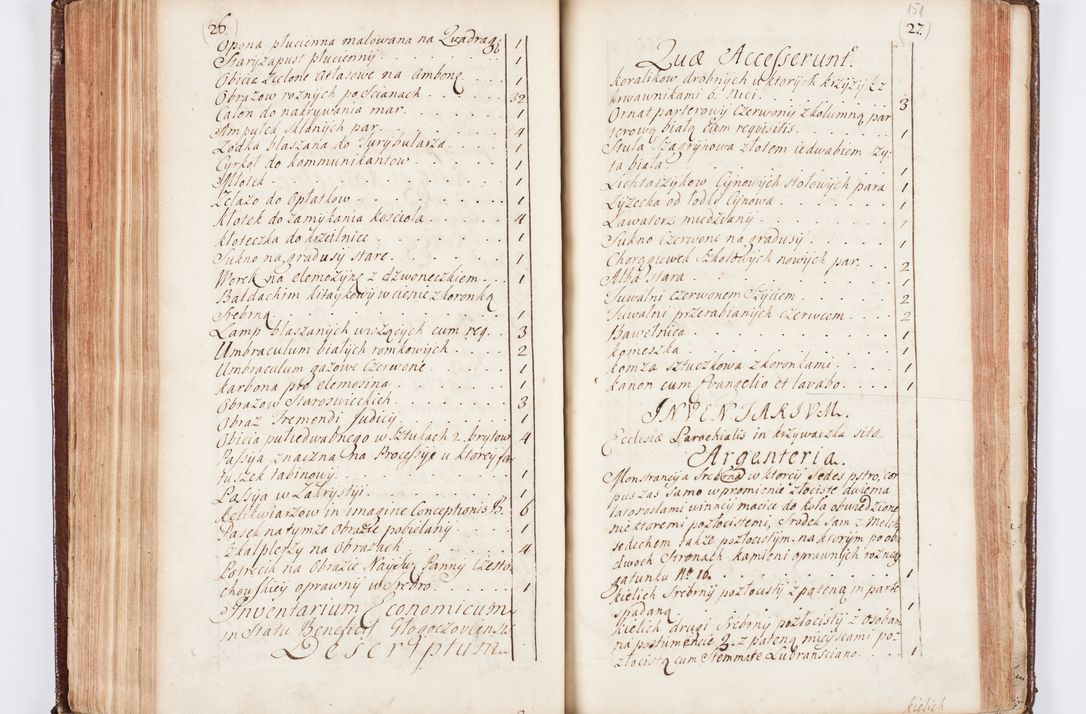 26.
Opona płucienna malowana na Quadrag: 1
Staryzapust płucienny . . . 1
Obicia zielone Atlasowe na Ambonę . . . 1
Obrazow roznych po scianach . . . 32
Calon do nakrywania mar . . . 1
Ampułek szklonych par . . . 4
Łodka blaszana do Turybularza . . . 1
Cyrkoł do kommunikantow . . . 1
Młotek . . . 1
Zelazo do opłatkow . . . 1
Kłotek do zamykania kosciola . . . 4
Kłoteczka do krzcilnice . . . 1
Sukno na gradusy stare . . . 1
Worek na elemozynę z dzwoneczkiem . . . 1
Baldachim kitaykowy w cienie z koronką
srebrną . . . 1
Lamp blaszanych wiszących cum req. . . . 3
Umbraculum białych romkowych . . . 2
Umbraculum gazowe czerwone . . . 1
Karbona pro elemosina . . . 1
Obrazow Staroswieckich . . . 3
Obraz Tremendi Judicy . . . 1
Obicia pułiedwabnego w sztukach 2. brytow 4
Passya znaczna na Processye u ktorey far
tuszek tabinowy . . . 1
Passya w Zakrystyi . . . 1
Relikwiarzow in imagine Conceptionis B. 6
Pasek na tymze obrazie pobielany . . . 1
Szkalplerzy na obrazach . . . 4
Potrzcik na Obrazie Nayświę: Panny Często
chowskiey oprawny w srebro . . . 1
Inventarium Economicum
in Statu Beneficy Głogoczoviensis
Descriptum.
151
27.
Quæ Accesserunt.
Koralikow drobnych w ktorych krzyzyk z
krwawnikami 6. nici . . . 3
Ornat parterowy czerwony z kolumną par
terową białą cum reqvisitis . . . 1
Stuła Szagrynowa złotem iedwabiem szy-
ta biała . . . 1
Lichtarzykow Cynowych stołowych para 1
Łyzecka od łodki Cynowa . . . 1
Lawaterz miedziany . . . 1
Sukno czerwone na gradusy . . . 1
Chorągiewek Szkolnych nowych par . . . 2
Alba stara . . . 1
Tuwalni czerwonem szyciem . . . 2
Tuwalni przerabianych czerwcem . . . 2
Bawełnica . . . 1
Komeszka . . . 1
Komza sztuczkowa z koronkami . . . 1
Kanon cum Evangelio et lavabo . . . 1
INVENTARIUM.
Ecclesiæ Parochialis in Krzywaczka sitæ
Argenteria.
Monstrancyia srebrna w ktorey sedes pstro, cor
pus zas samo w promienie złociste dwiema
latoroslami winney macice do koła obwiedzione
niektoremi pozłocistemi, srodek sam z Melch
sedechem także pozłocistym, na ktorym po obu
dwoch stronach kamieni oprawnych roznego
gatunku Nro 16. . . . 1
Kielich srebrny pozłocisty z pateną in parte
spadaną . . . 1
Kielich drugi srebrny pozłocisty z osobam
na postumencie 3. z pateną miejscami po-
złocistą cum Stemmate Lubransciano . . . 1
Kielich